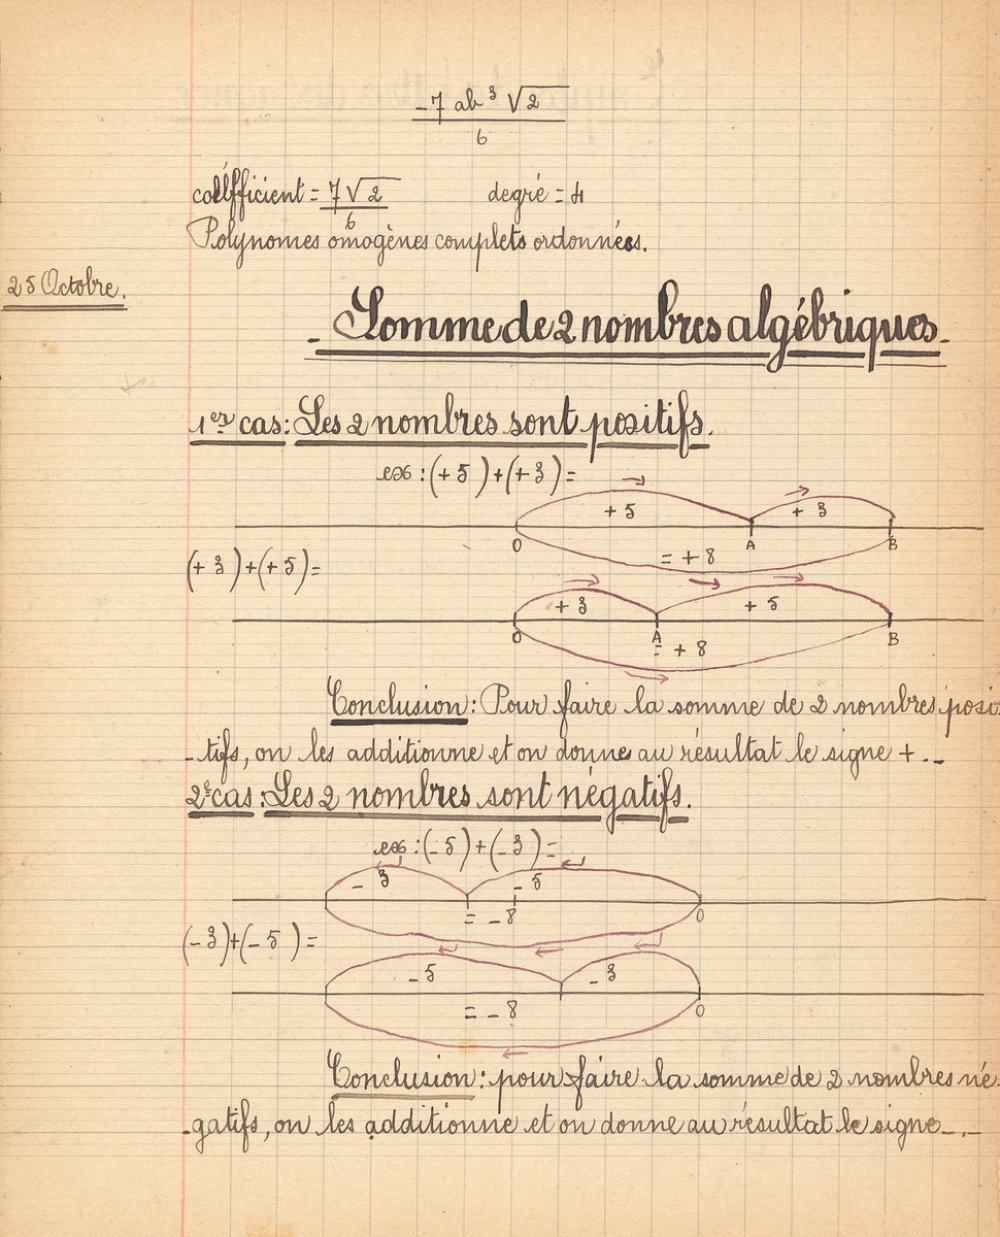 -7 ab³ √2
6
coéfficient = 7√2 degré = 4
6
Polynomes omogènes complets ordonnées.
25 Octobre.
- Somme de 2 nombres algébriques.-
1er cas : Les 2 nombres sont positifs.
ex : (+ 5 ) + (+ 3 ) =
+ 5 + 3
O A B
= + 8
(+ 3 ) + (+ 5 ) =
+ 3 + 5
O A B
= + 8
Conclusion : Pour faire la somme de 2 nombres posi
- tifs, on les additionne et on donne au résultat le signe + . -
2e cas : Les 2 nombres sont négatifs.
ex : (- 5 ) + (- 3 ) =
- 3 - 5
= - 8 O
(- 3 ) + (- 5 ) =
- 5 - 3
= - 8 O
Conclusion : pour faire la somme de 2 nombres né
- gatifs, on les additionne et on donne au résultat le signe - . -